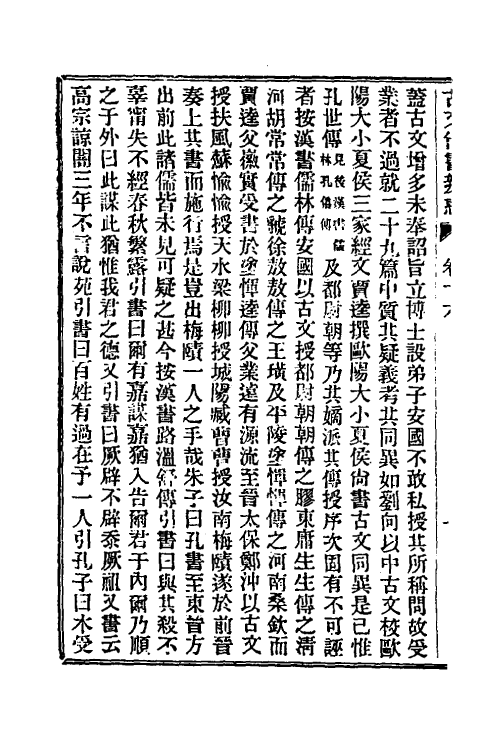 蓋古文增多未奉詔旨立博士設弟子安國不敢私授其所稱問故受
業者不過就二十九篇中質其疑義考其同異如劉向以中古文校歐
陽大小夏侯三家經文賈逵撰歐陽大小夏侯尙書古文同異是已惟
孔世傳見後漢書儒林孔僖傳及都尉朝等乃其嫡派其傳授序次固有不可誣
者按漢書儒林傳安國以古文授都尉朝朝傳之膠東庸生生傳之淸
河胡常常傳之虢徐敖敖傳之王璜及平陵塗惲惲傳之河南桑欽而
賈逵父徽實受書於塗惲逵傳父業遠有源流至晉太保鄭沖以古文
授扶風蘇愉愉授天水梁柳柳授城陽臧曹曹授汝南梅賾遂於前晉
奏上其書而施行焉是豈出梅賾一人之手哉朱子曰孔書至東晉方
出前此諸儒皆未見可疑之甚今按漢書路溫舒傳引書曰與其殺不
辜甯失不經春秋繁露引書曰爾有嘉謀嘉猶入告爾君于內爾乃順
之于外曰此謀此猶惟我君之德又引書曰厥辟不辟忝厥祖又書云
高宗諒闇三年不言說苑引書曰百姓有過在予一人引孔子曰木受